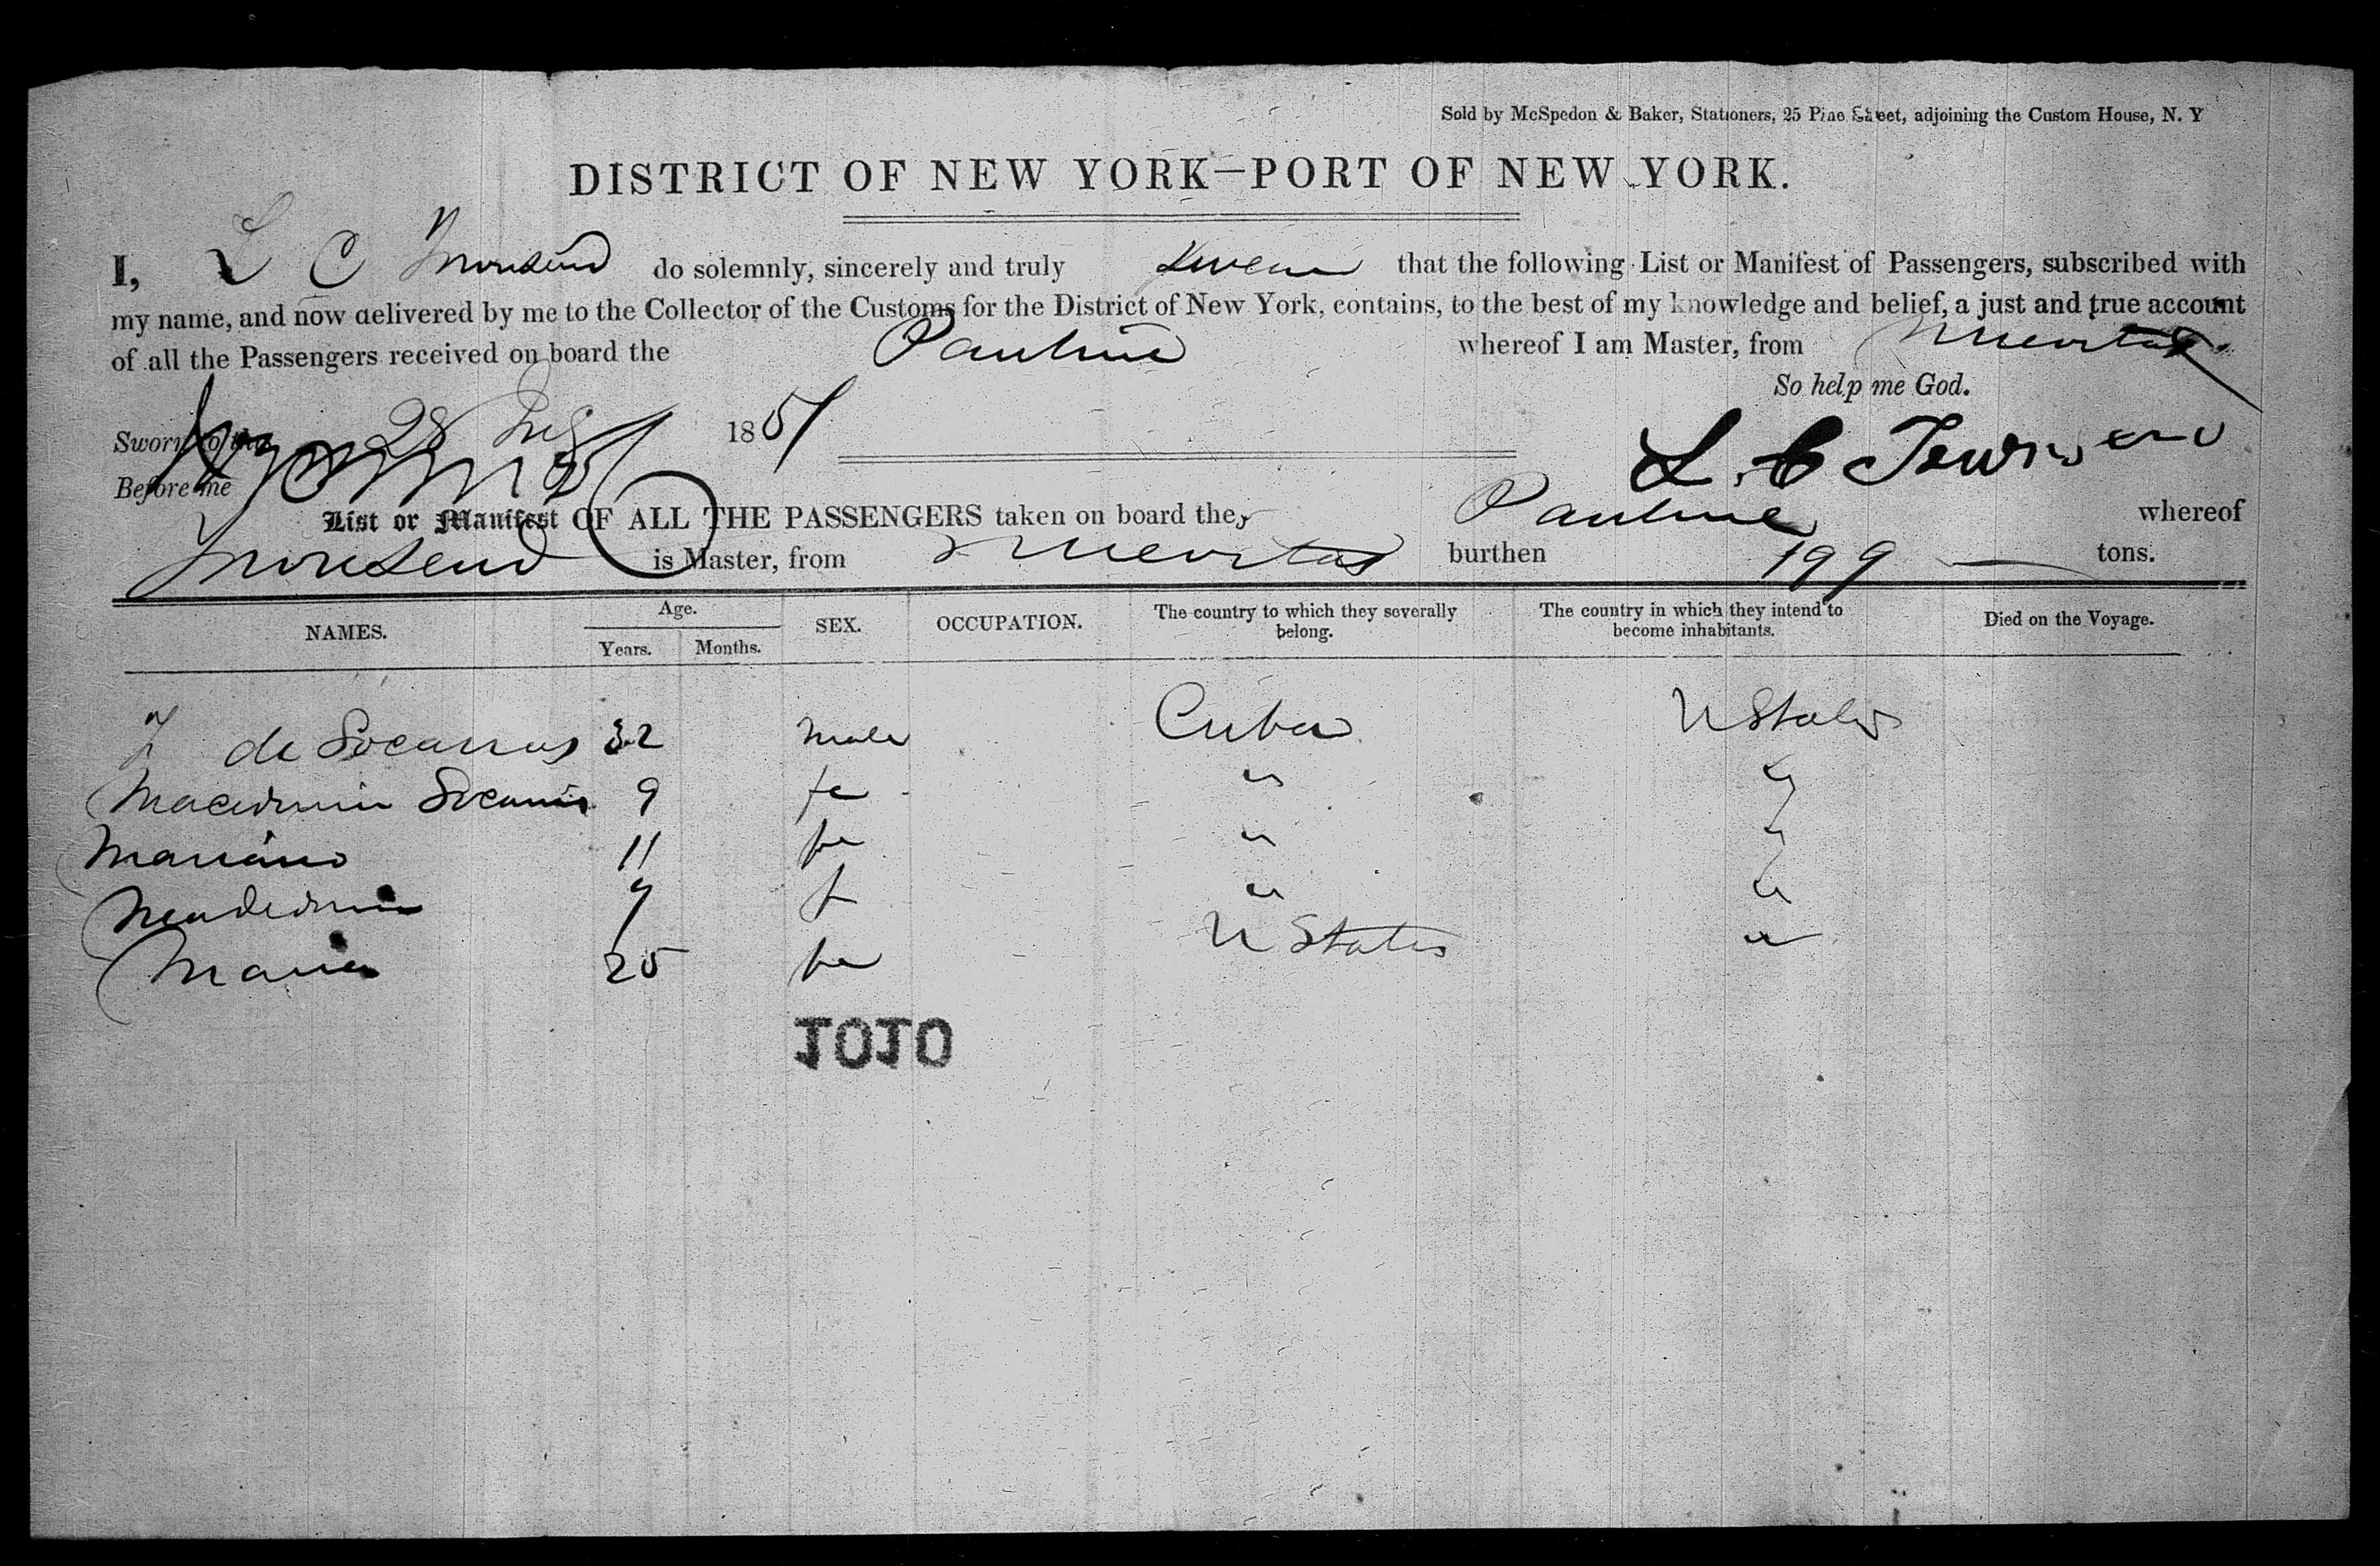 Sold by McSpedon & Baker, Stationers, 25 Pine Street, adjoining the Custom House, N. Y
DISTRICT OF NEW YORK—PORT OF NEW YORK.
I, L C Townsend do solemnly, sincerely and truly swear that the following List or Manifest of Passengers, subscribed with
my name, and now delivered by me to the Collector of the Customs for the District of New York, contains, to the best of my knowledge and belief, a just and true account
of all the Passengers received on board the Pauline whereof I am Master, from Nuevitas
So help me God.
Sworn to the 28 1851
L. C Townsend
Before me
List or Manifest OF ALL THE PASSENGERS taken on board the Pauline whereof
Townsend is Master, from Nuevitas burthen 199 tons.
NAMES. Age. Years. Months. SEX. OCCUPATION. The country to which they severally belong. The country in which they intend to become inhabitants. Died on the Voyage.
de Socarras 32 male Cuba U States
Socarras 9 fe " "
Mariano 11 fe " "
7 f " "
Maria 25 fe U States "
1010